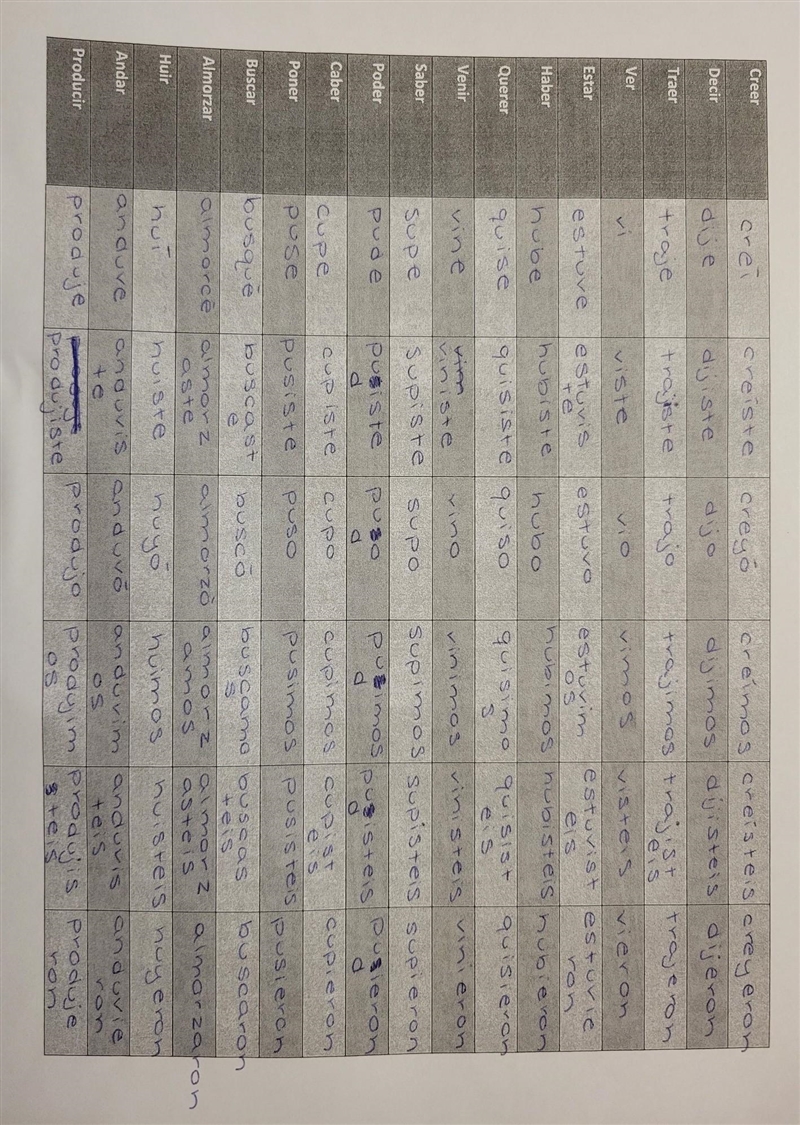 Creer creí creíste creyó creímos creísteis creyeron
Decir dije dijiste dijo dijimos dijisteis dijeron
Traer traje trajiste trajo trajimos trajisteis trajeron
Ver vi viste vio vimos visteis vieron
Estar estuve estuviste estuvo estuvimos estuvisteis estuvieron
Haber hube hubiste hubo hubimos hubisteis hubieron
Querer quise quisiste quiso quisimos quisisteis quisieron
Venir vine viniste vino vinimos vinisteis vinieron
Saber supe supiste supo supimos supisteis supieron
Poder pude pudiste pudo pudimos pudisteis pudieron
Caber cupe cupiste cupo cupimos cupisteis cupieron
Poner puse pusiste puso pusimos pusisteis pusieron
Buscar busqué buscaste buscó buscamos buscasteis buscaron
Almorzar almorcé almorzaste almorzó almorzamos almorzasteis almorzaron
Huir huí huiste huyó huimos huisteis huyeron
Andar anduve anduviste anduvó anduvimos anduvisteis anduvieron
Producir produje produjiste produjo produjimos produjisteis produjeron